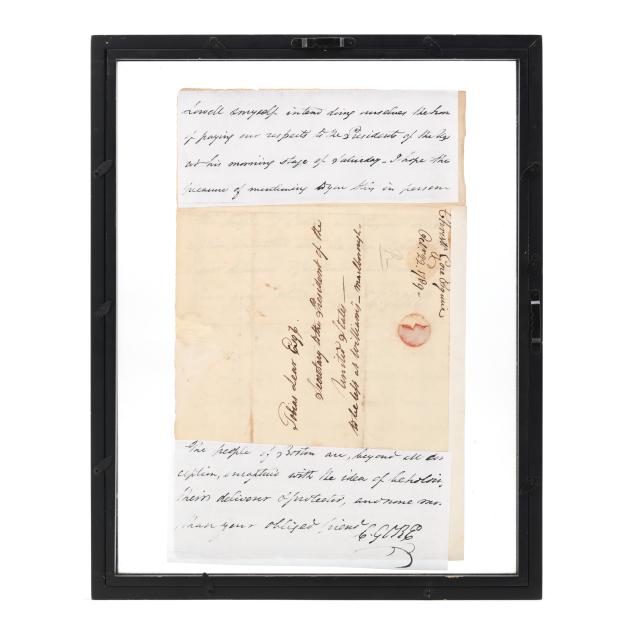 Lowell & myself intend doing ourselves the hon
of paying our respects to the President of the
at his morning stage of Saturday - I hope the
pleasure of mentioning to you this in person
Tobias Lear Esqr.
Secretary to the President of the
United States —
to be left at Williams's - Marlborough -
Christr Gore Esquire
Octr 22, 1789 -
The people of Boston are, beyond all
ception, enraptured with the idea of beholding
their deliverer & protector, and none mo
than your obliged friend
C. GORE